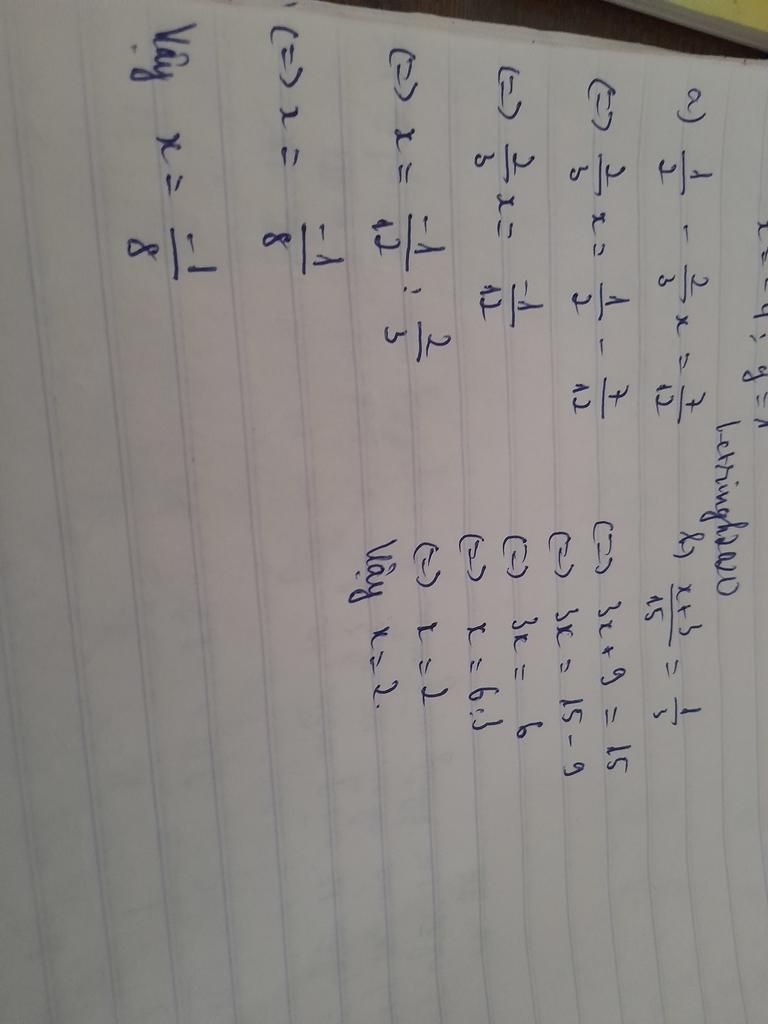 x = -4; y = 1
a) 1/2 - 2/3 x = 7/12
(=) 2/3 x = 1/2 - 7/12
(=) 2/3 x = -1/12
(=) x = -1/12 : 2/3
(=) x = -1/8
Vậy x = -1/8
b) x+3/15 = 1/3
(=) 3x + 9 = 15
(=) 3x = 15 - 9
(=) 3x = 6
(=) x = 6:3
(=) x = 2
Vậy x = 2.